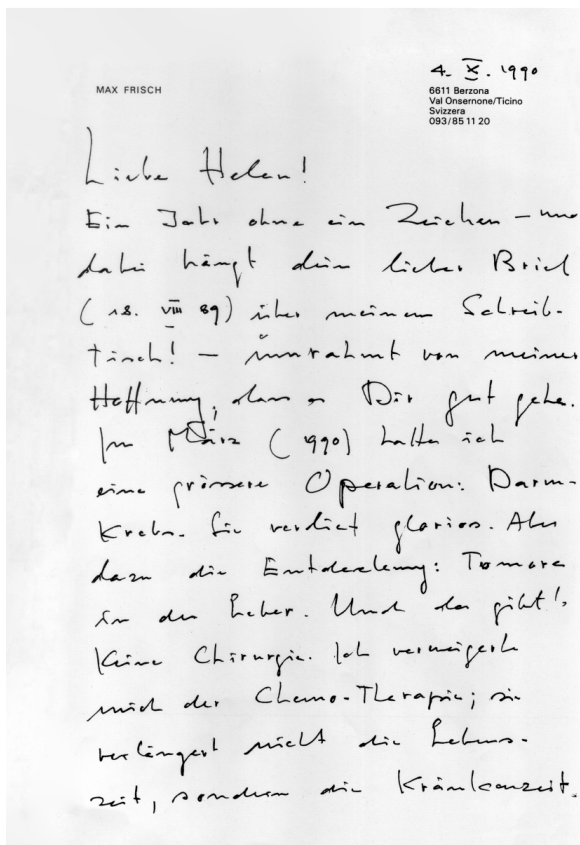 4. X. 1990
MAX FRISCH
6611 Berzona
Val Onsernone/Ticino
Svizzera
093/85 11 20
Liebe Helen!
Ein Jahr ohne ein Zeichen – und
dabei hängt dein lieber Brief
(18. VIII 89) über meinem Schreib-
tisch! – umrahmt von meiner
Hoffnung, dass es Dir gut gehe.
Im März (1990) hatte ich
eine grössere Operation: Darm-
Krebs. Sie verlief glorios. Aber
dazu die Entdeckung: Tumore
in der Leber. Und da gibt's
keine Chirurgie. Ich verweigerte
mich der Chemo-Therapie; sie
verlängert nicht die Lebens-
zeit, sondern die Krankenzeit.